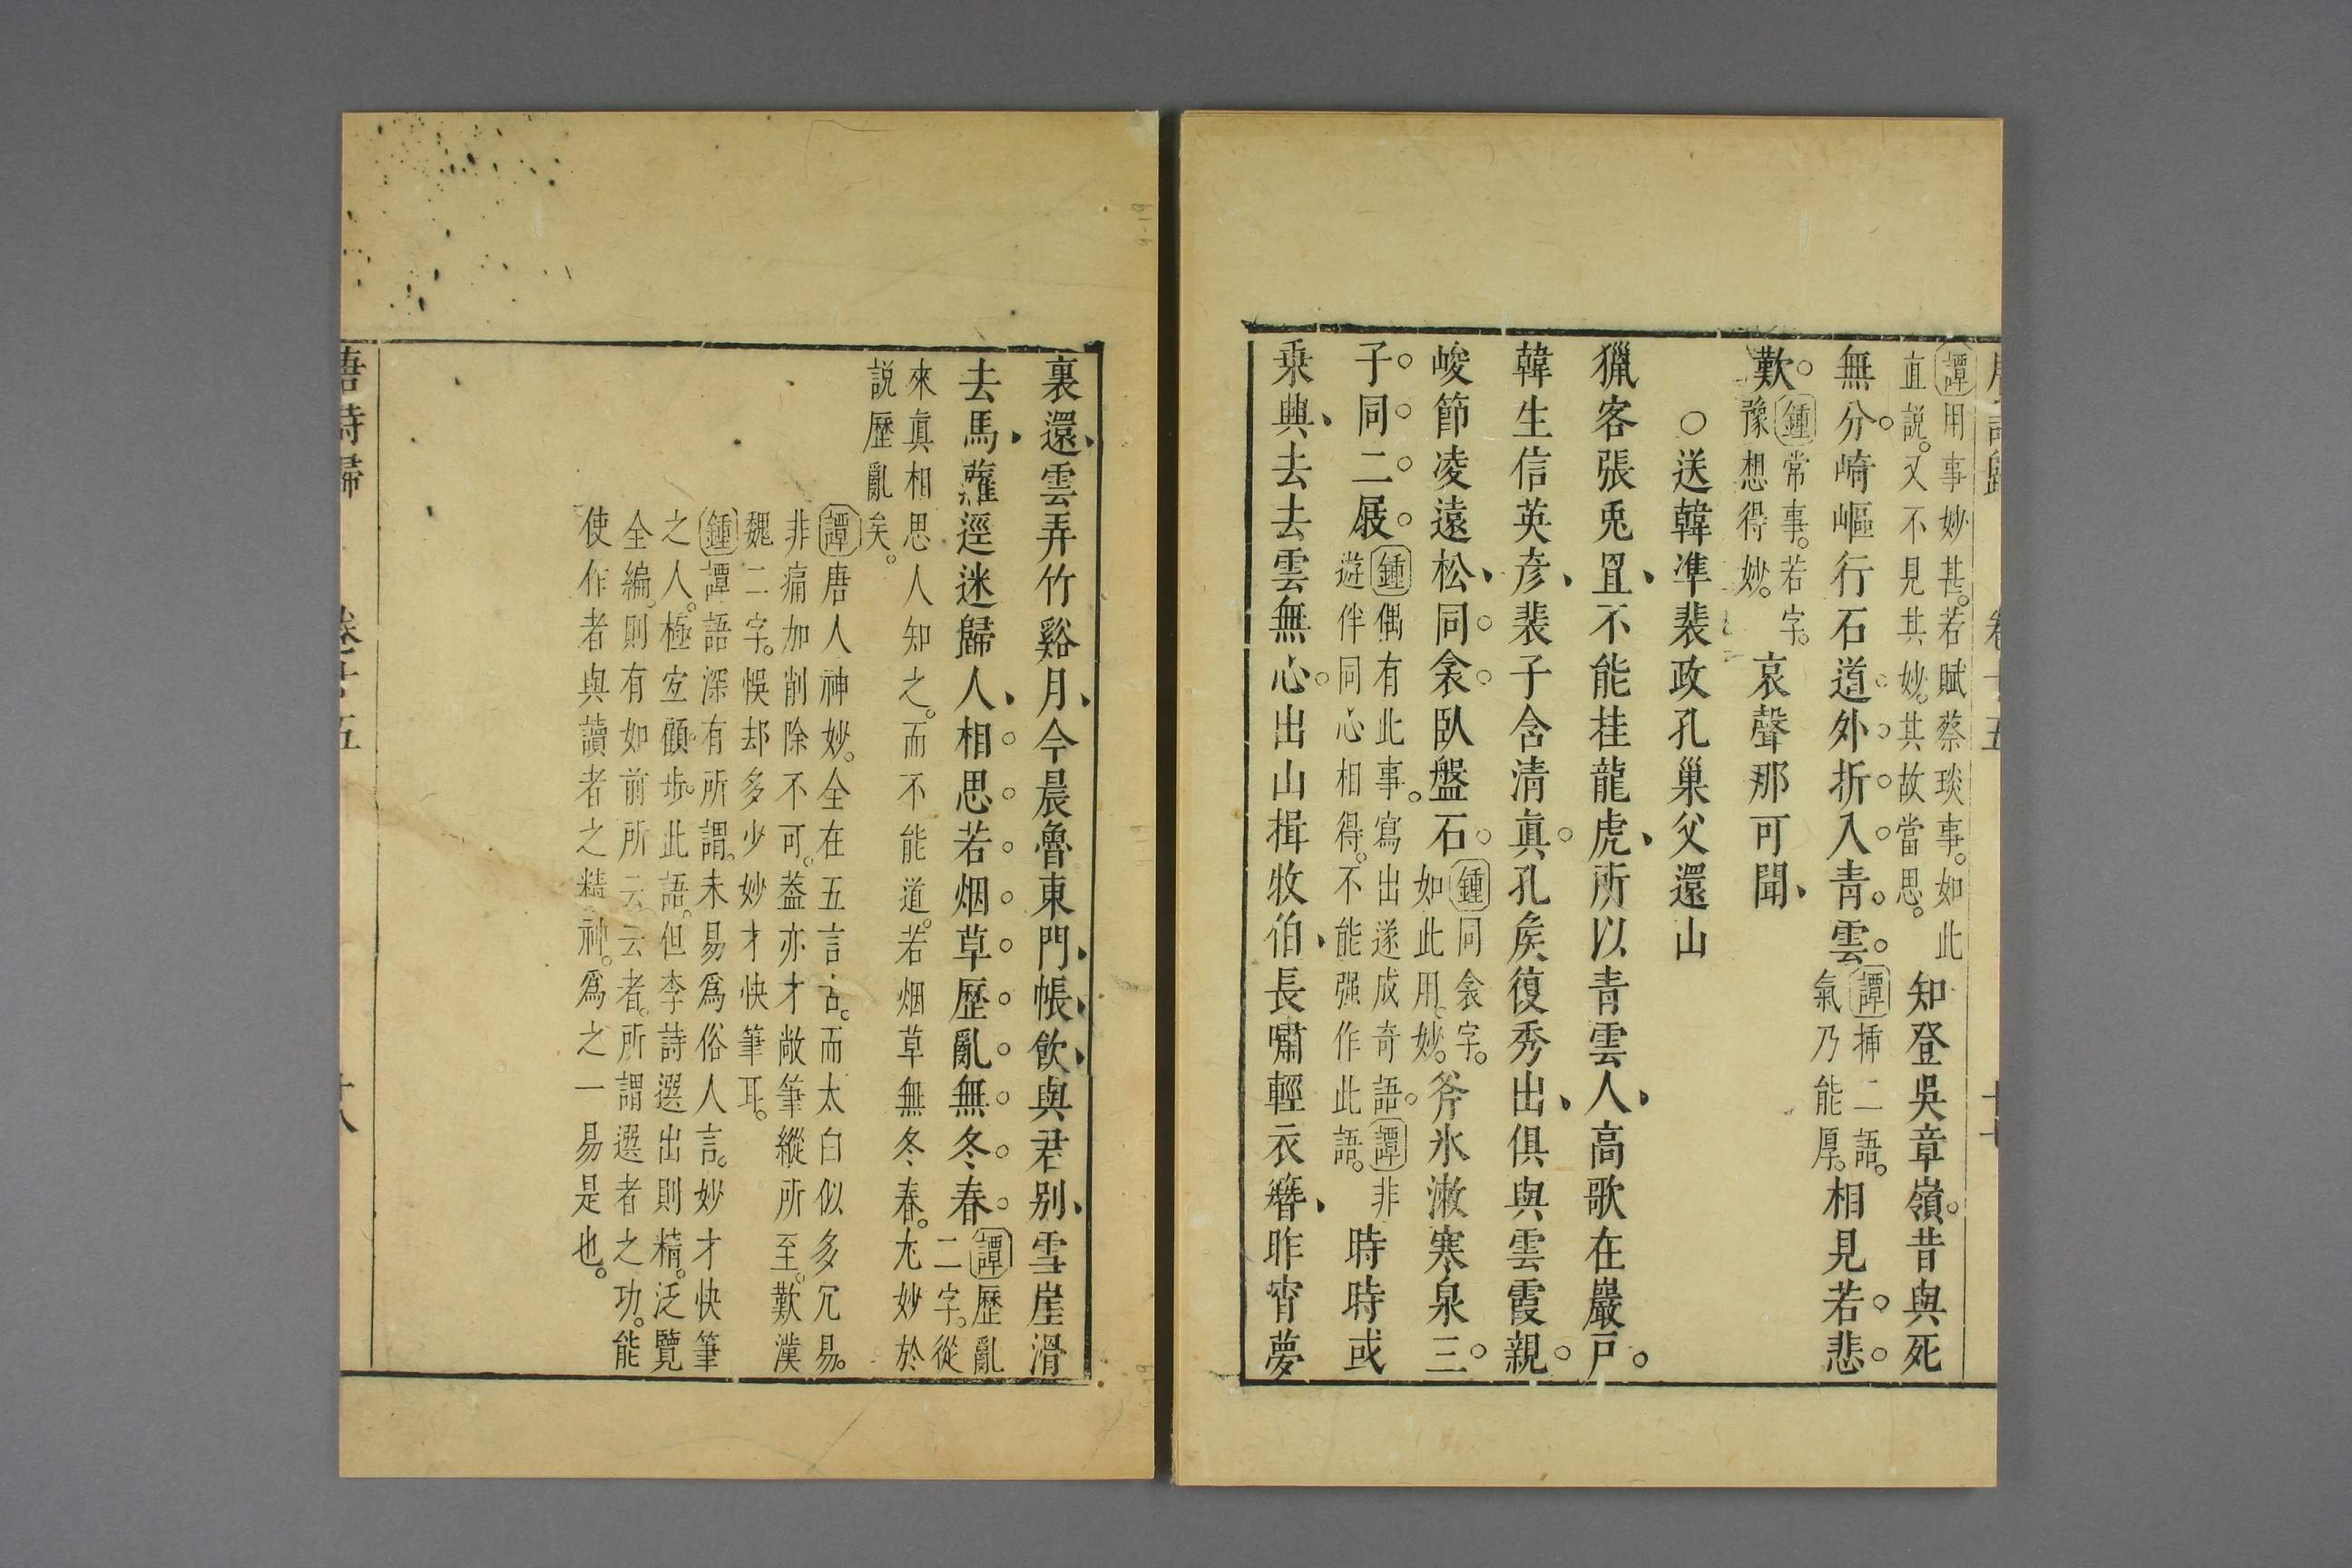 唐詩歸 卷十五 十七
譚用事妙甚。若賦蔡琰事。如此
直説。又不見其妙。其故當思。
知登吳章嶺。昔與死
無分。崎嶇行石道。外折入青雲。
譚揷二語。
氣乃能厚。
相見若悲
歎。
鍾常事。若字。
豫想得妙。
哀聲那可聞、
○送韓準裴政孔巢父還山
獵客張兎罝、不能挂龍虎、所以青雲人、高歌在巖戸。
韓生信英彥、裴子含清眞。孔矦復秀出、俱與雲霞親。
峻節凌遠松、同衾臥盤石。
鍾同衾字。
如此用。妙。
斧氷漱寒泉三
子同二屐。
鍾偶有此事。寫出遂成奇語。譚非
遊伴同心相得。不能强作此語。
時時或
乗興、去去雲無心。出山揖牧伯、長嘯輕衣簪、昨宵夢
裏還、雲弄竹谿月、今晨魯東門、帳飲與君别、雪崖滑
去馬、蘿逕迷歸人、相思若烟草歷亂無冬春。
譚歷亂
二字。從
來眞相思人知之。而不能道。若烟草無冬春。尢妙於
説歷亂矣。
譚唐人神妙。全在五言古。而太白似多冗易。
非痛加削除不可。葢亦才敞筆縱所至。歎漢
魏二字。悞却多少妙才快筆耳。
鍾譚語深有所謂。未易爲俗人言。妙才快筆
之人。極宐顧步此語。但李詩選出則精。泛覽
全編。則有如前所云云者。所謂選者之功。能
使作者與讀者之精神。爲之一易是也。
唐詩歸 卷十五 十八